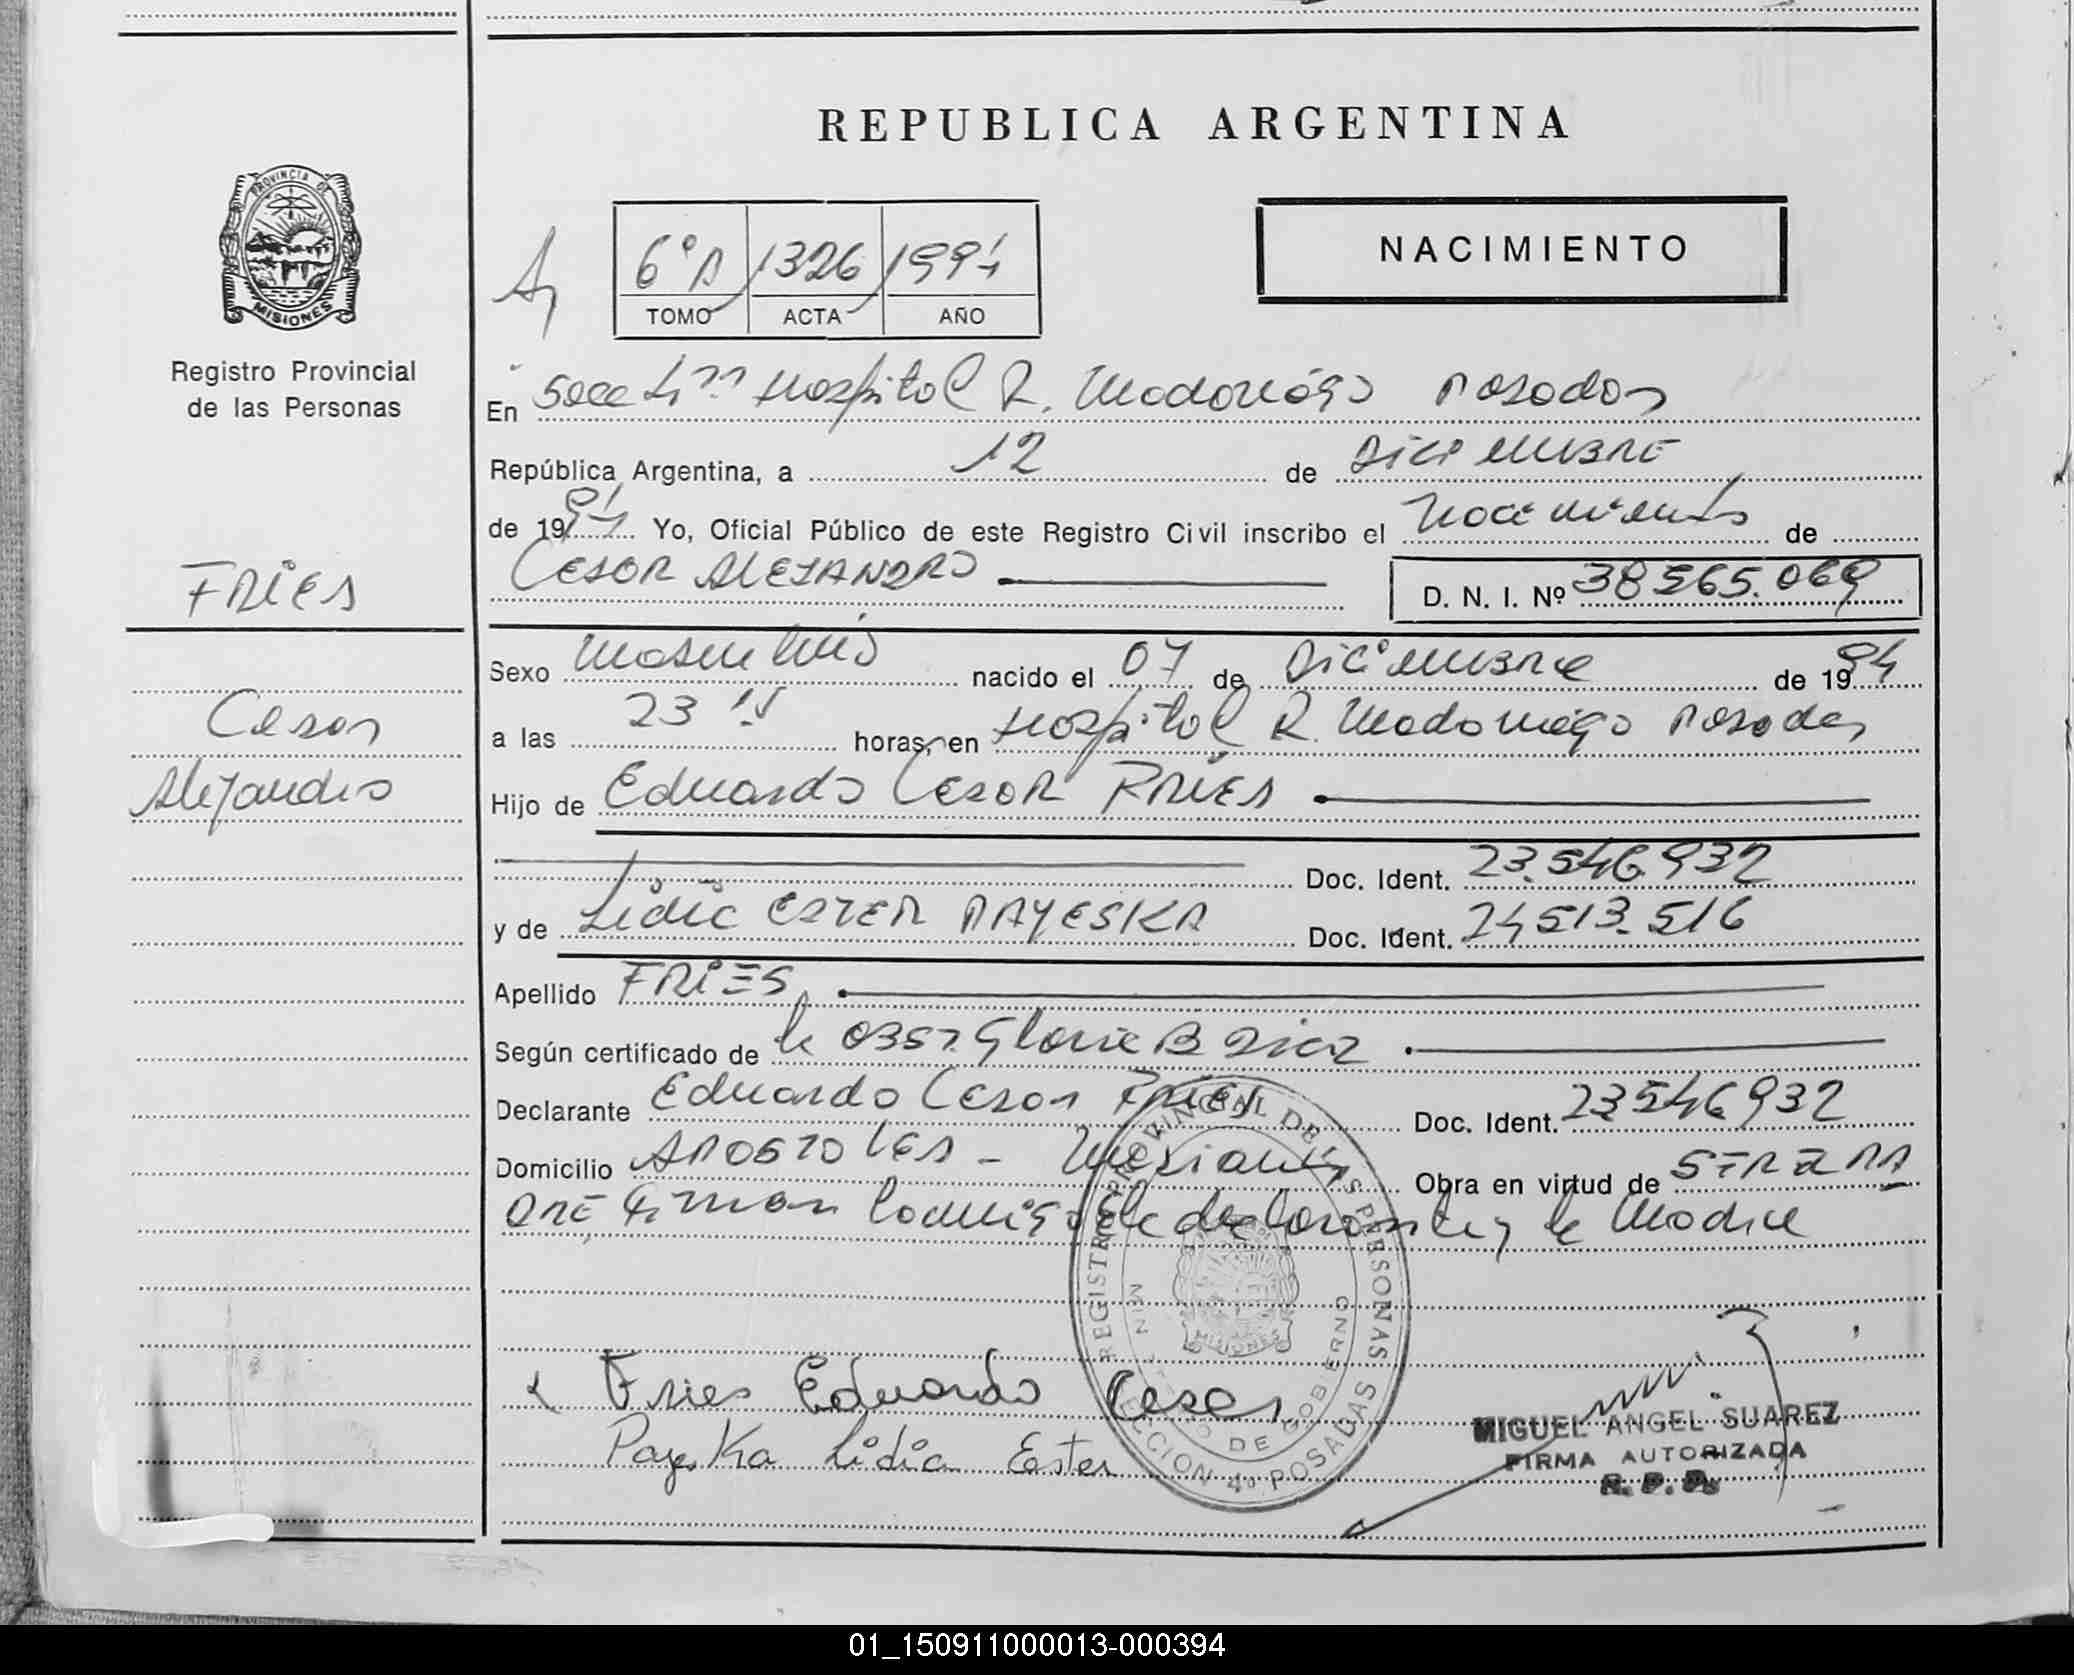 REPUBLICA ARGENTINA
PROVINCIA DE
MISIONES
Registro Provincial
de las Personas
6º A 1326 1994
TOMO ACTA AÑO
NACIMIENTO
En Secc 4ª Hospital R. Madariaga Posadas
República Argentina, a 12 de DICIEMBRE
de 1994 Yo, Oficial Público de este Registro Civil inscribo el Nacimiento de
CESAR ALEJANDRO
D. N. I. Nº 38565.069
FRIES
Cesar
Alejandro
Sexo Masculino nacido el 07 de Diciembre de 1994
a las 23 horas, en Hospital R. Madariaga Posadas
Hijo de Eduardo CESAR FRIES
Doc. Ident. 23.546.932
y de Lidia ESTER PAYESKA Doc. Ident. 24513.516
Apellido FRIES
Según certificado de la OBST. Gloria B Diaz
Declarante Eduardo Cesar FRIES Doc. Ident. 23546932
Domicilio APOSTOLES - Misiones Obra en virtud de SER PA
DRE Firman Conmigo el declarante y la Madre
Fries Eduardo Cesar
Payeska Lidia Ester
REGISTRO PROVINCIAL DE LAS PERSONAS
DE GOBIERNO
MISIONES
4º POSADAS
MIGUEL ANGEL SUAREZ
FIRMA AUTORIZADA
R. P. P.
01_150911000013-000394